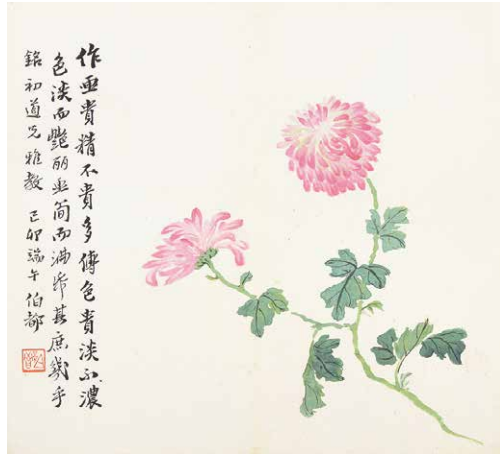 作画貴精不貴多傅色貴淡不濃
色淡而艷丽画簡而滿帋其庶幾乎
銘初道兄雅教 己卯端午 伯都